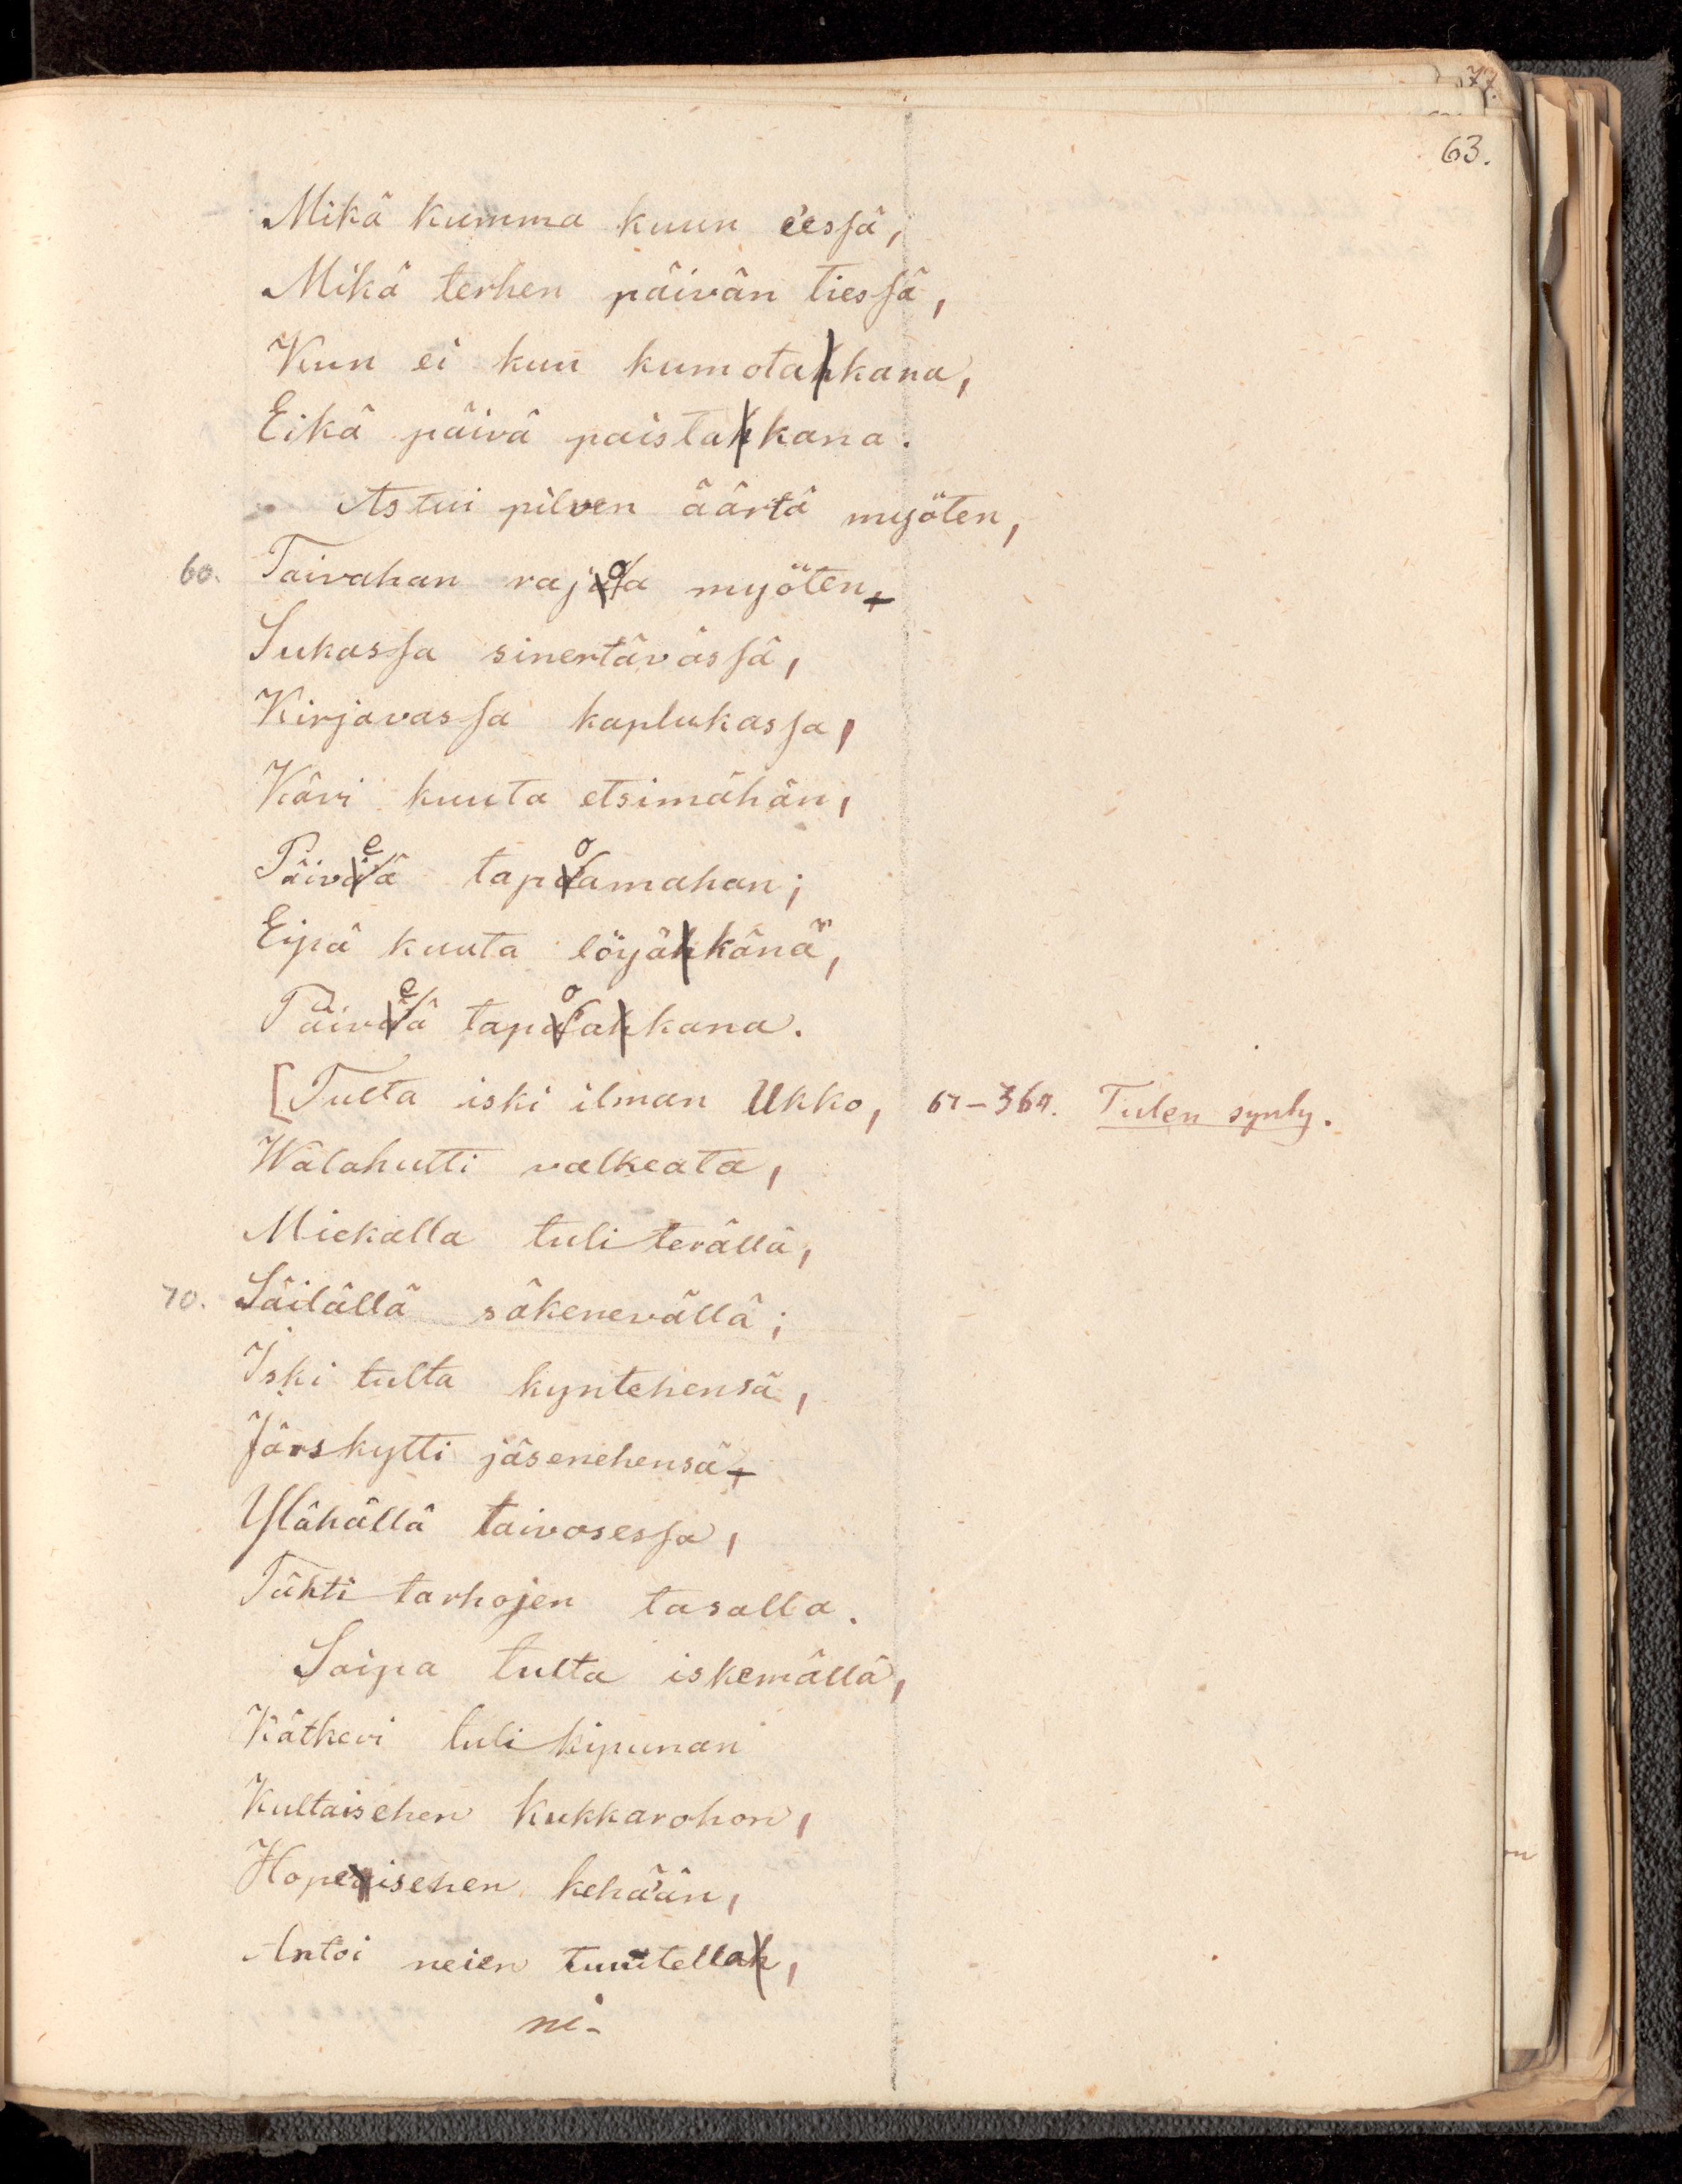 77.
63.
Mikä kumma kuun e'essä,
Mikä terhen päivän tiessä,
Kun ei kuu kumotakkana,
Eikä päivä paistakkana.
Astui pilven äärtä myöten,
60. Taivahan rajoa myöten
Sukassa sinertävässä,
Kirjavassa kaplukassa,
Kävi kuuta etsimähän,
Päiveä tapoamahan;
Eipä kuuta löyäkkänä,
Päiveä tapoakkana.
[Tulta iski ilman Ukko, 67–364. Tulen synty.
Wälahutti valkeata,
Miekalla tuliterällä,
70. Säilällä säkenevällä;
Iski tulta kyntehensä,
Järskytti jäsenehensä
Ylähällä taivosessa,
Tähtitarhojen tasalla.
Saipa tulta iskemällä,
Kätkevi tulikipunan
Kultaisehen kukkarohon,
Hopeisehen kehään,
Antoi neien tuutellak,
ni-